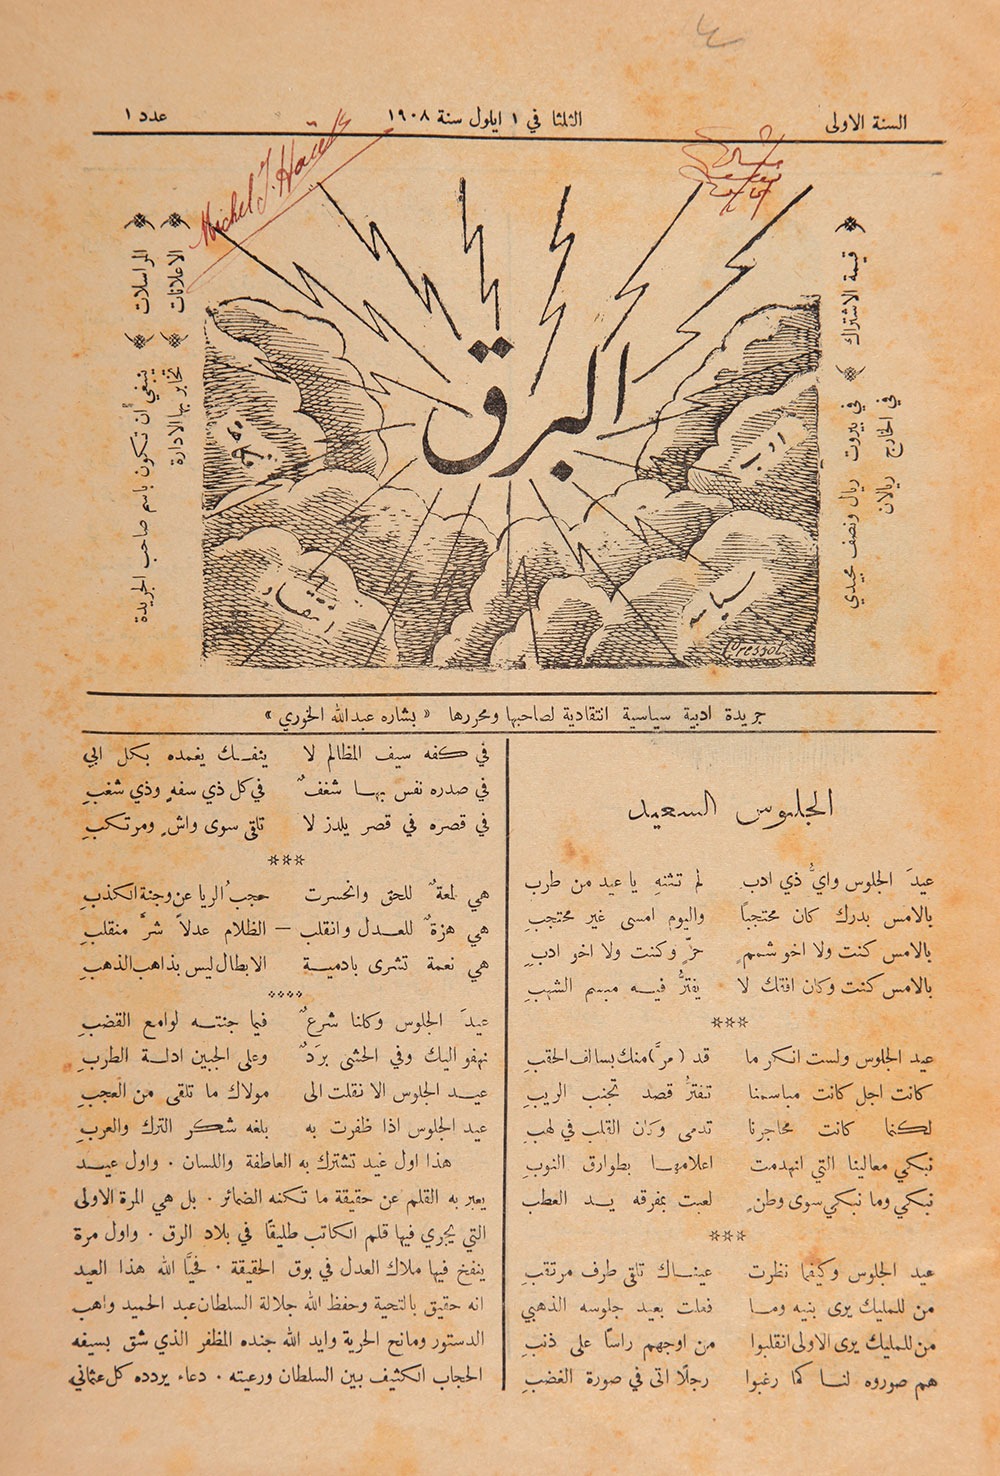 السنة الاولى
الثلثا في ١ ايلول سنة ١٩٠٨
عدد ١
Michel J.
قيمة الاشتراك
في بيروت ريال ونصف مجيدي
في الخارج ريالان
البرق
ادب
سياسه
انتقاد
Pressot
المراسلات
ينبغي أن تكون باسم صاحب الجريدة
الاعلانات
تخابر بها الادارة
جريدة ادبية سياسية انتقادية لصاحبها ومحررها « بشاره عبدالله الخوري »
الجلوس السعيد
عيدَ الجلوس وايُّ ذي ادبٍ لم تثنهِ يا عيد من طرب
بالامس بدرك كان محتجباً واليوم امسى غير محتجبِ
بالامس كنت ولا اخو شممٍ حرٍّ وكنت ولا اخو ادبِ
بالامس كنت وكان افقك لا يفترُّ فيه مبسم الشهبِ
***
عيد الجلوس ولست انكر ما قد (مرَّ) منك بسالف الحقبِ
كانت اجل كانت مباسمنا تفترُّ قصد تجنب الريبِ
لكنما كانت محاجرنا تدمى وكان القلب في لهبِ
نبكي معالينا التي انهدمت اعلامها بطوارق النوبِ
نبكي وما نبكي سوى وطنٍ لعبت بمفرقه يد العطبِ
***
عيد الجلوس وكيفما نظرت عيناك تلقى طرف مرتقبِ
من للمليك يرى بنيه وما فعلت بعيد جلوسه الذهبي
من للمليك يرى الاولى انقلبوا من اوجهم راساً على ذنبِ
هم صوروه لنا كما رغبوا رجلاً اتى في صورة الغضبِ
في كفه سيف المظالم لا ينفك يغمده بكل ابي
في صدره نفس بها شغفٌ في كل ذي سفهٍ وذي شغبِ
في قصره في قصر يلدز لا تلقى سوى واشٍ ومرتكبِ
***
هي لمعةٌ للحق وانحسرت حجبُ الريا عن وجنة الكذبِ
هي هزةٌ للعدل وانقلب – الظلام عدلاً شرَّ منقلبِ
هي نعمة تشرى بادمية الابطال ليس بذاهب الذهبِ
****
عيدَ الجلوس وكلنا شرعٌ فيما جنته لوامع القضبِ
نهفو اليك وفي الحشى بردٌ وعلى الجبين ادلة الطربِ
عيد الجلوس الا نقلت الى مولاك ما تلقى من العجبِ
عيد الجلوس اذا ظفرت به بلغه شكر الترك والعربِ
هذا اول عيد تشترك به العاطفة واللسان . واول عيد
يعبر به القلم عن حقيقة ما تكنه الضمائر . بل هي المرة الاولى
التي يجري فيها قلم الكاتب طليقاً في بلاد الرق . واول مرة
ينفخ فيها ملاك العدل في بوق الحقيقة . فحيَّا الله هذا العيد
انه حقيق بالتحية وحفظ الله جلالة السلطان عبد الحميد واهب
الدستور ومانح الحرية وايد الله جنده المظفر الذي شق بسيفه
الحجاب الكثيف بين السلطان ورعيته . دعاء يردده كل عثماني